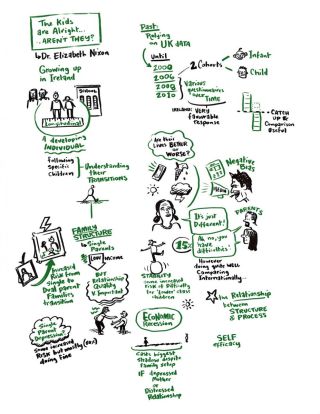 The Kids
are Alright...
..AREN'T THEY?
Dr. Elizabeth Nixon
Growing up
in Ireland
SCHOOL
Longitudinal
A developing
INDIVIDUAL
Following
Specific
Children
Understanding
their
TRANSITIONS
FAMILY
STRUCTURE
Single
Parents
LOW INCOME
Increased
Risk from
Single to
Dual parent
Families
transition
BUT
Relationship
Quality
V. Important
Single
Parent
Depression
Some increased
Risk but mostly (80%)
doing fine
Past:
Relying
on
UK DATA
Until
2000
2006
2008
2010
2 Cohorts
Infant
Child
Various
questionnaires
over
Time
IRELAND: VERY
favorable
response
CATCH
UP &
Comparison
Useful
Are their
Lives BETTER
or
WORSE?
Negative
Bias
MEDIA
PARENTS
It's just
Different!
15%
Ah no, you
have
difficulties
However
doing quite well
Comparing
Internationally...
STABILITY
some increased
risk of difficulty
for "lower" class
children
The Relationship
between
STRUCTURE
& PROCESS
ECONOMIC
Recession
SELF
efficacy
Casts biggest
shadow despite
Family setup
IF depressed
Mother
or
Distressed
Relationship